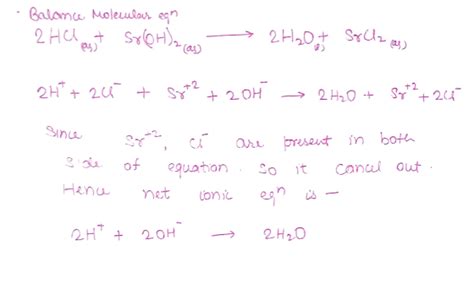 · Balance Molecular eqⁿ
2HCl(aq) + Sr(OH)₂(aq) ⟶ 2H₂O(l) + SrCl₂(aq)
2H⁺ + 2Cl⁻ + Sr⁺² + 2OH⁻ ⟶ 2H₂O + Sr⁺² + 2Cl⁻
Since Sr⁻², Cl⁻ are present in both
side of equation. So it cancel out.
Hence net ionic eqⁿ is —
2H⁺ + 2OH⁻ ⟶ 2H₂O